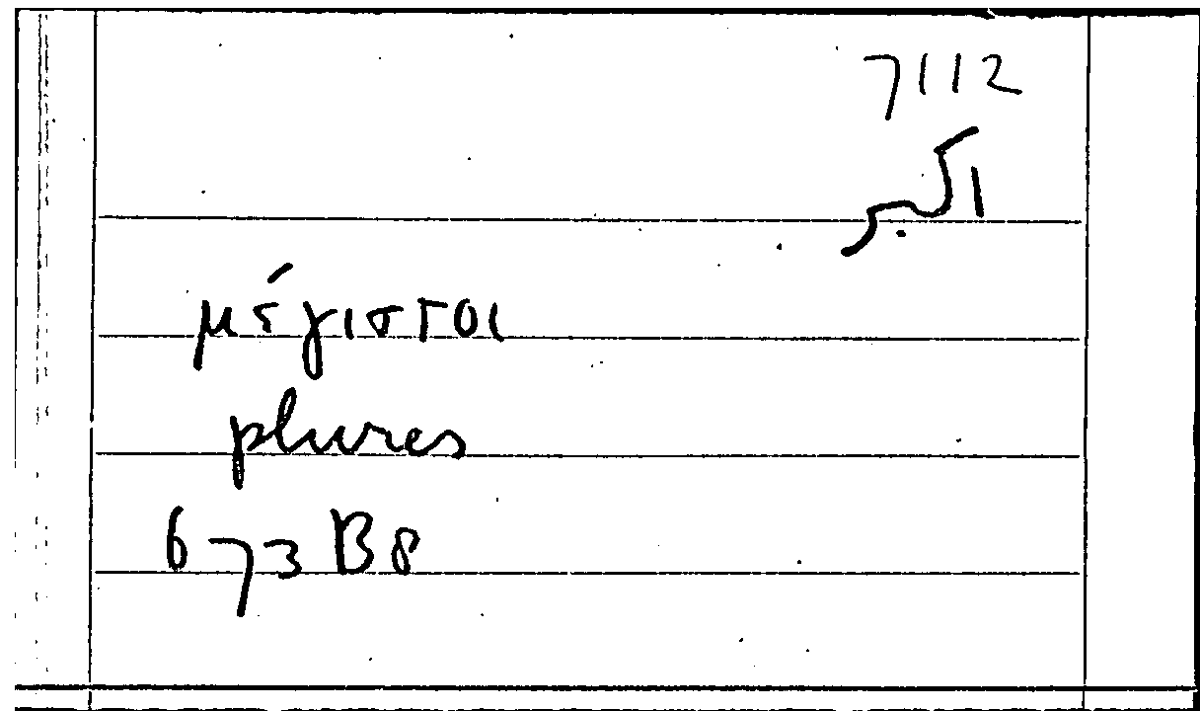 7112
μέγιστοι
plures
673 B8